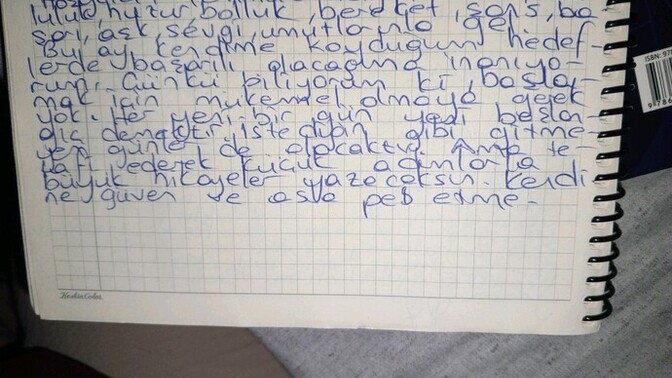 luluk, huzur, bolluk, bereket, şans, ba-
şarı, aşk, sevgi, umutlarla gel
Bu ay kendime koyduğum hedef-
lerde başarılı olacağıma inanıyo-
rum. Çünkü biliyorum ki, başla-
mak için mükemmel olmaya gerek
yok. Her yeni bir gün yeni başlan-
gıç demektir, istediğin gibi gitme-
yen günler de olacaktır. Ama te-
ederek küçük adımlarla
büyük hikayeler yazacaksın. Kendi
ne güven ve asla pes etme.
Keskin Color
ISBN: 97
9 786